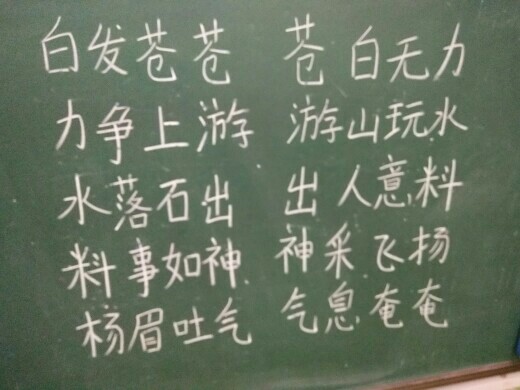 白发苍苍 苍白无力
力争上游 游山玩水
水落石出 出人意料
料事如神 神采飞扬
杨眉吐气 气息奄奄